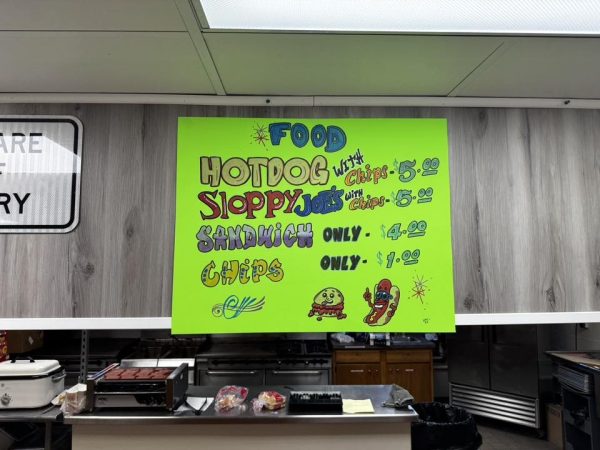 ARE
F
RY
FOOD
HOTDOG WITH Chips - $5.00
Sloppy JOE'S WITH Chips - $5.00
SANDWICH ONLY - $4.00
CHIPS ONLY - $1.00